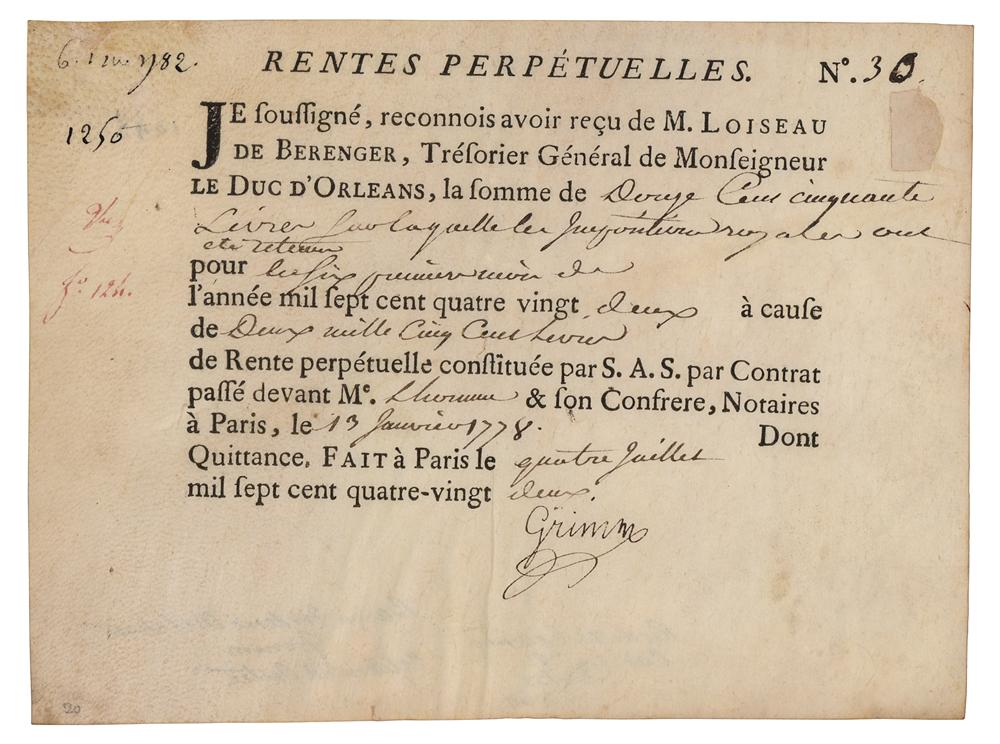 6. 1782.
RENTES PERPÉTUELLES. Nº. 30.
1250
JE ſouſſigné, reconnois avoir reçu de M. LOISEAU
DE BERENGER, Tréſorier Général de Monſeigneur
LE DUC D'ORLEANS, la ſomme de Douze Cens cinquante
Livres sur laquelle les Impositions royales ont
été retenu
pour les six premiers mois de
l'année mil ſept cent quatre vingt deux à cauſe
de Deux mille Cinq Cens Livres
de Rente perpétuelle conſtituée par S. A. S. par Contrat
paſſé devant Me. Lhomme & ſon Confrere, Notaires
à Paris, le 13 Janvier 1778. Dont
Quittance. FAIT à Paris le quatre Juillet
mil ſept cent quatre-vingt deux.
Grimm
fº. 124.
20